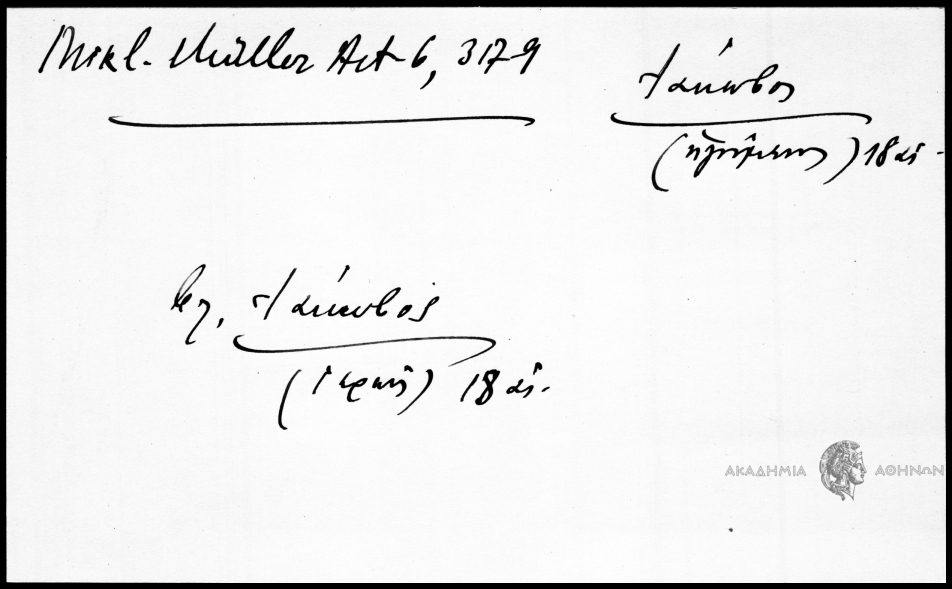 Mikl. Müller Act. 6, 317-9
Ἰάκωβος
(ἡγούμενος) 18 αἰ.
βλ. Ἰάκωβος
(ἱερεύς) 18 αἰ.
ΑΚΑΔΗΜΙΑ ΑΘΗΝΩΝ